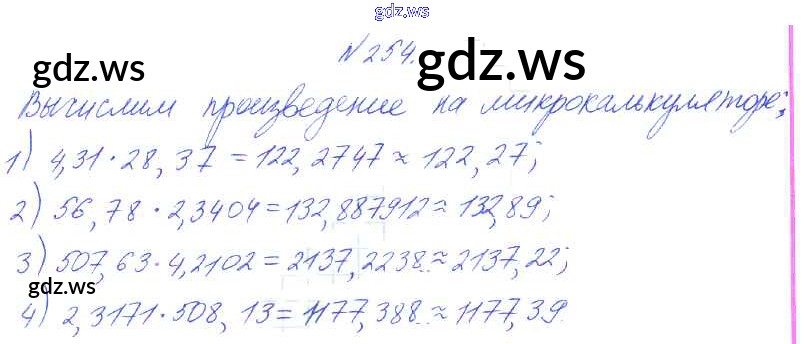 gdz.ws
№254.
gdz.ws gdz.ws
Вычислим произведение на микрокалькуляторе;
1) 4,31·28,37=122,2747≈122,27;
2) 56,78·2,3404=132,887912≈132,89;
3) 507,63·4,2102=2137,2238..≈2137,22;
gdz.ws
4) 2,3171·508,13=1177,388..≈1177,39.
gdz.ws